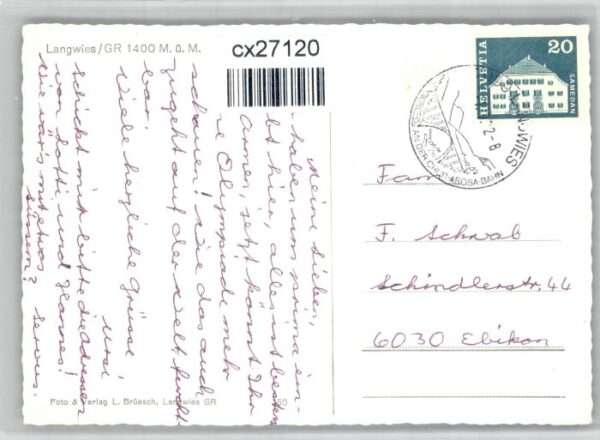 Langwies/GR 1400 M. ü. M.
cx27120
HELVETIA
20
SAMEDAN
LANGWIES
AN DER CHUR-AROSA-BAHN
Meine Lieben,
haben uns prima ein-
hier, alles ist bestens
Armen, jetzt könnt Ihr
Olympiade mehr
schauen! Wie das auch
zugeht auf der Welt, furcht-
bar.
Viele herzliche Grüsse
Ursi
Schickt mir bitte die Adressen
von Lotti und Hanns!
Wie war's mit
Servus.
Fam.
F. Schwab
Schindlerstr. 44
6030 Ebikon
Foto & Verlag L. Brüesch, Langwies GR